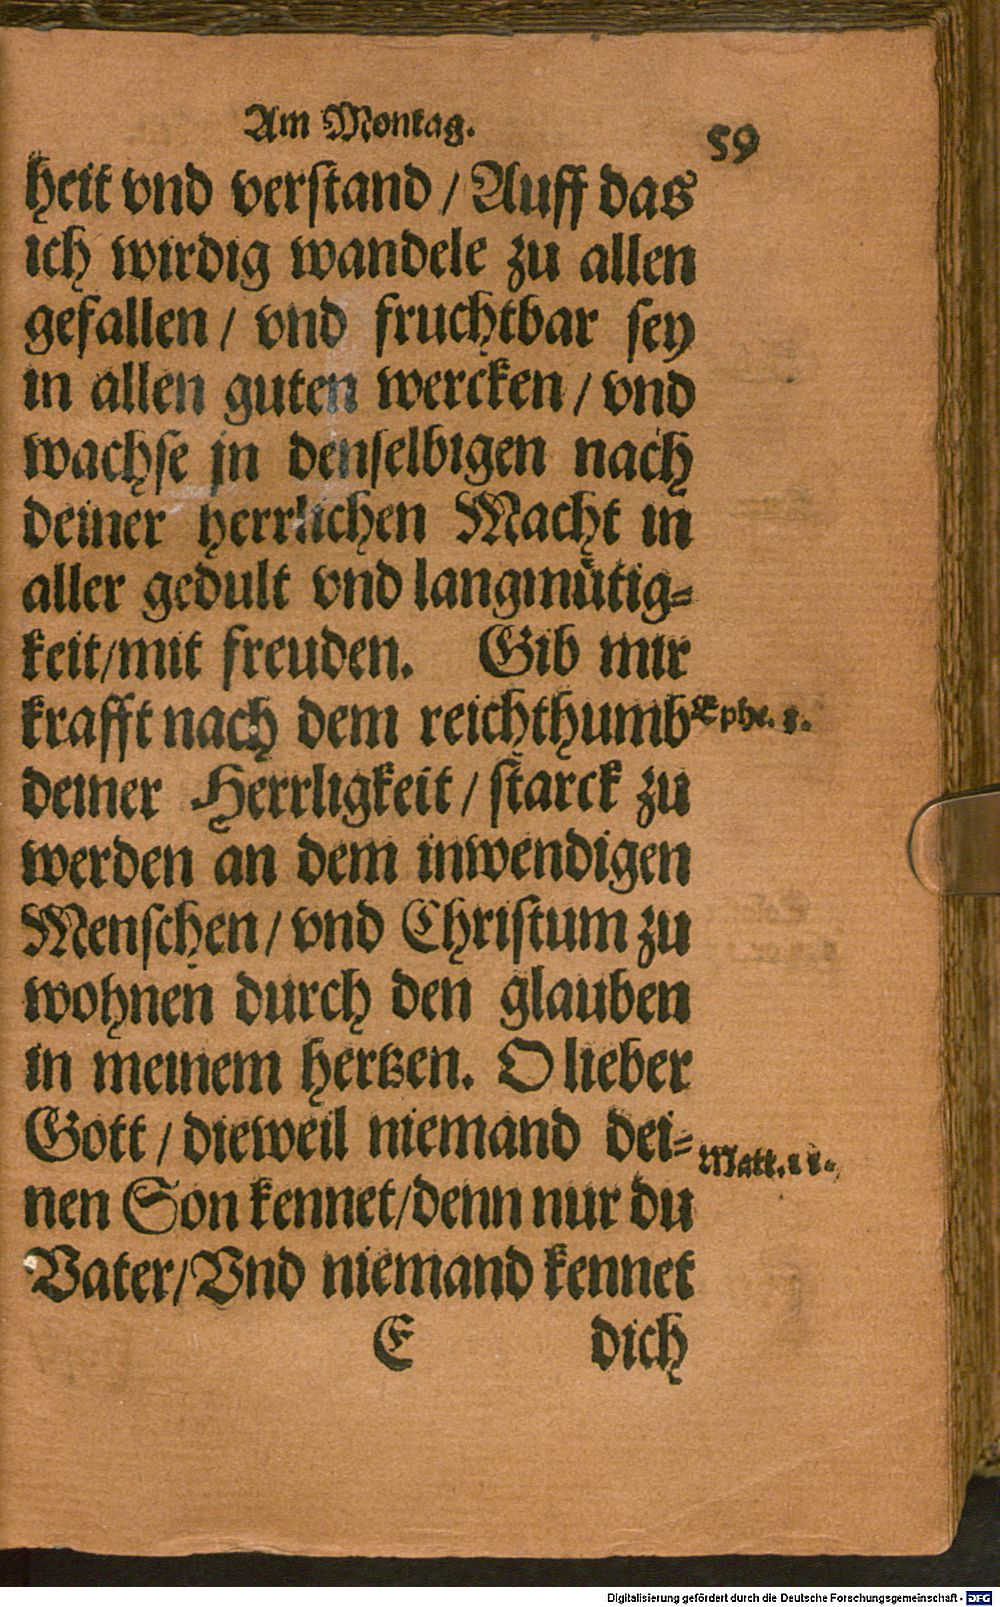 Am Montag. 59
heit vnd verstand / Auff das
ich wirdig wandele zu allen
gefallen / vnd fruchtbar sey
in allen guten wercken / vnd
wachse jn denselbigen nach
deiner herrlichen Macht in
aller gedult vnd langmütig⸗
keit/mit freuden. Gib mir
krafft nach dem reichthumb Ephe. 3.
deiner Herrligkeit / starck zu
werden an dem inwendigen
Menschen / vnd Christum zu
wohnen durch den glauben
in meinem hertzen. O lieber
Gott / dieweil niemand dei⸗ Matt. 11.
nen Son kennet/denn nur du
Vater/Vnd niemand kennet
E dich
Digitalisierung gefördert durch die Deutsche Forschungsgemeinschaft - DFG